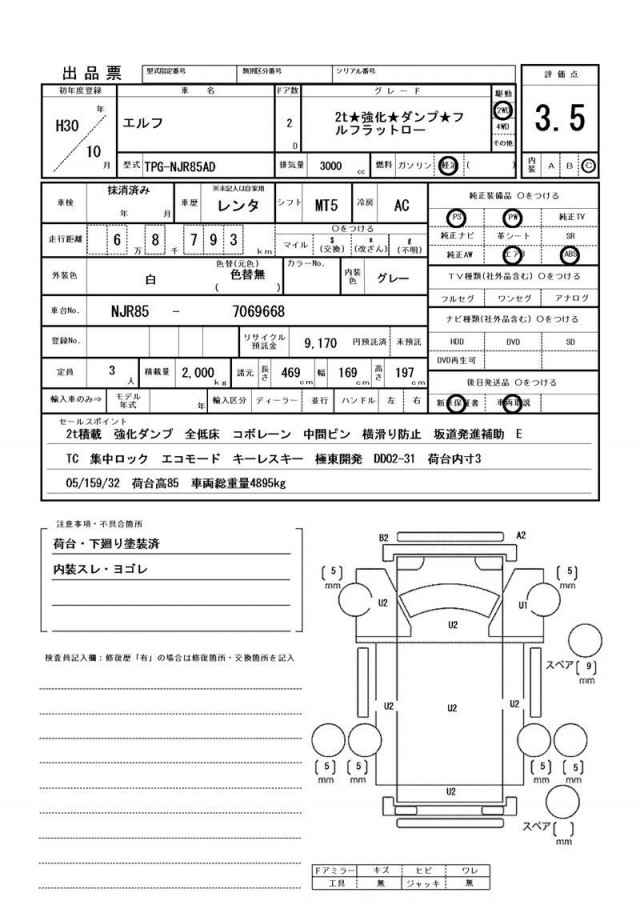 出品票 型式指定番号 類別区分番号 シリアル番号
初年度登録 車名 ドア数 グレード 駆動 評価点
H30 年 10 月 エルフ 2 D 2t★強化★ダンプ★フ 2WD 3.5
ルフラットロー 4WD
その他
型式 TPG-NJR85AD 排気量 3000 cc 燃料 ガソリン 軽油 ( ) 内装 A B C
車検 抹消済み 年 月 車歴 ※未記入は自家用 レンタ シフト MT5 冷房 AC 純正装備品 〇をつける
PS PW 純正TV
走行距離 6 万 8 千 7 9 3 km 〇をつける マイル $ (交換) * (改ざん) # (不明) 純正ナビ 革シート SR
純正AW エアB ABS
外装色 白 色替(元色) 色替無 ( ) カラーNo. 内装色 グレー TV種類(社外品含む) 〇をつける
フルセグ ワンセグ アナログ
車台No. NJR85 - 7069668 ナビ種類(社外品含む) 〇をつける
登録No. リサイクル預託金 9,170 円預託済 未預託 HDD DVD SD
DVD再生可
定員 3 人 積載量 2,000 kg 諸元 長さ 469 cm 幅 169 cm 高さ 197 cm 後日発送品 〇をつける
輸入車のみ⇒ モデル年式 年 輸入区分 ディーラー 並行 ハンドル 左 右 新車保証書 車両取説
セールスポイント
2t積載 強化ダンプ 全低床 コボレーン 中間ピン 横滑り防止 坂道発進補助 E
TC 集中ロック エコモード キーレスキー 極東開発 DD02-31 荷台内寸3
05/159/32 荷台高85 車両総重量4895kg
注意事項・不具合箇所
荷台・下廻り塗装済
内装スレ・ヨゴレ
検査員記入欄：修復歴「有」の場合は修復箇所・交換箇所を記入
B2 A2
(5) mm (5) mm
U2 U1
U2
スペア (9) mm
U2 U2 U2
(5) mm (5) mm (5) mm (5) mm
U2
スペア ( ) mm
ドアミラー キズ ヒビ ワレ
工具 無 ジャッキ 無